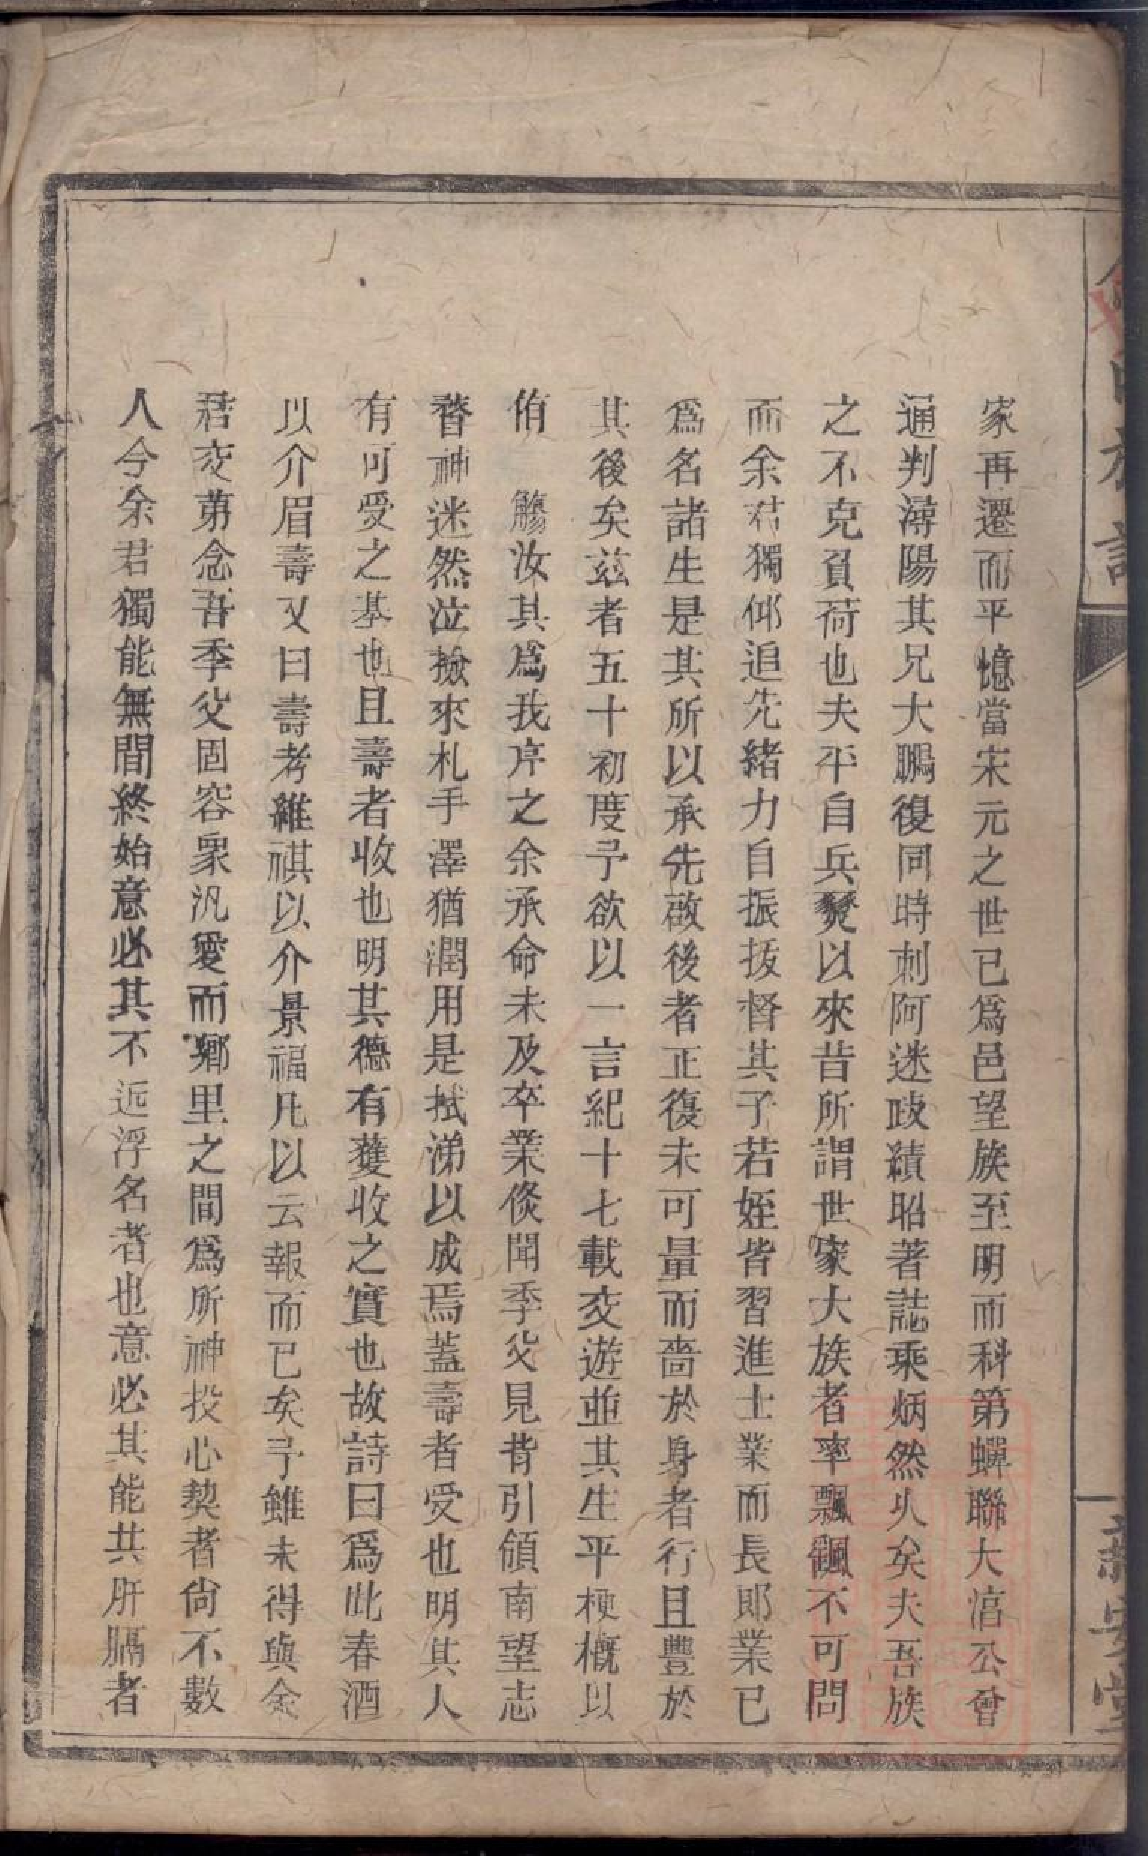 家再遷而平憶當宋元之世已爲邑望族至明而科第蟬聯大涫公曾
通判潯陽其兄大鵬復同時刺阿迷政績昭著誌乘炳然乆矣夫吾族
之不克負荷也夫平自兵燹以來昔所謂世家大族者率飄颻不可問
而余君獨仰追先緒力自振拔督其子若姪皆習進士業而長郎業已
爲名諸生是其所以承先啟後者正復未可量而嗇於身者行且豐於
其後矣兹者五十初度予欲以一言紀十七載交遊並其生平梗概以
侑 觴汝其爲我序之余承命未及卒業倐聞季父見背引領南望志
瞀神迷然泣撿來札手澤猶潤用是拭涕以成焉蓋壽者受也明其人
有可受之基也且壽者收也明其德有蓑收之實也故詩曰爲此春酒
以介眉壽又曰壽考維祺以介景福凡以云報而已矣予雖未得與金
君交第念吾季父固容衆汎愛而鄉里之間爲所神投心契者尙不數
人今余君獨能無間終始意必其不近浮名者也意必其能共肝膈者
族譜
安堂